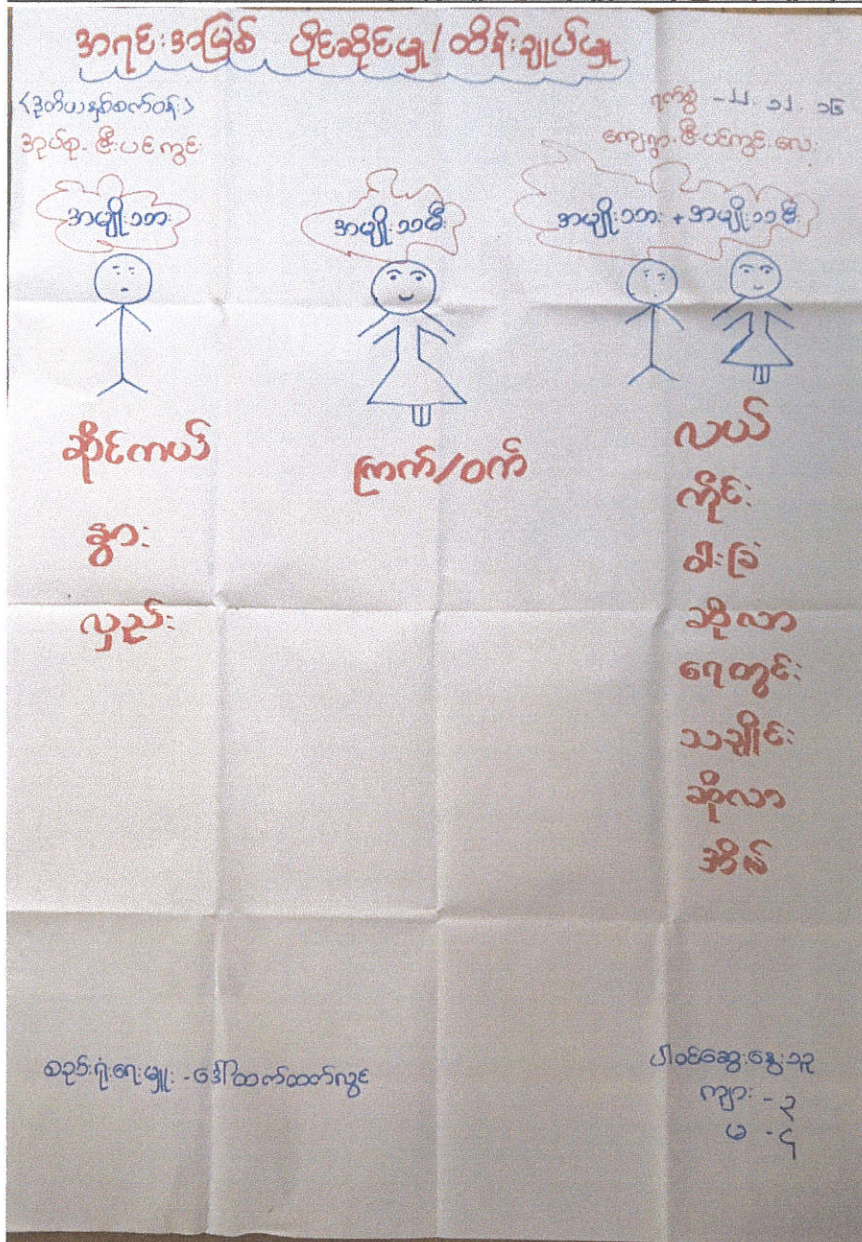 အရင်းအမြစ် ပိုင်ဆိုင်မှု/ထိန်းချုပ်မှု
<ဒုတိယနှစ်စက်ဝန်း>
ရက်စွဲ - ၂၂. ၁၂. ၁၆
အုပ်စု - ဇီးပင်ကွင်း
ကျေးရွာ - ဇီးပင်ကွင်းလေး
အမျိုးသား
အမျိုးသမီး
အမျိုးသား + အမျိုးသမီး
ဆိုင်ကယ်
နွား
လှည်း
ကြက်/ဝက်
လယ်
ကိုင်း
ဝါးခြံ
ဆိုလာ
ရေတွင်း
သချိုင်း
ဆိုလာ
အိမ်
စည်းရုံးရေးမှူး - ဒေါ်ထက်ထက်လွင်
ပါဝင်ဆွေးနွေးသူ
ကျား - ၃
မ - ၄